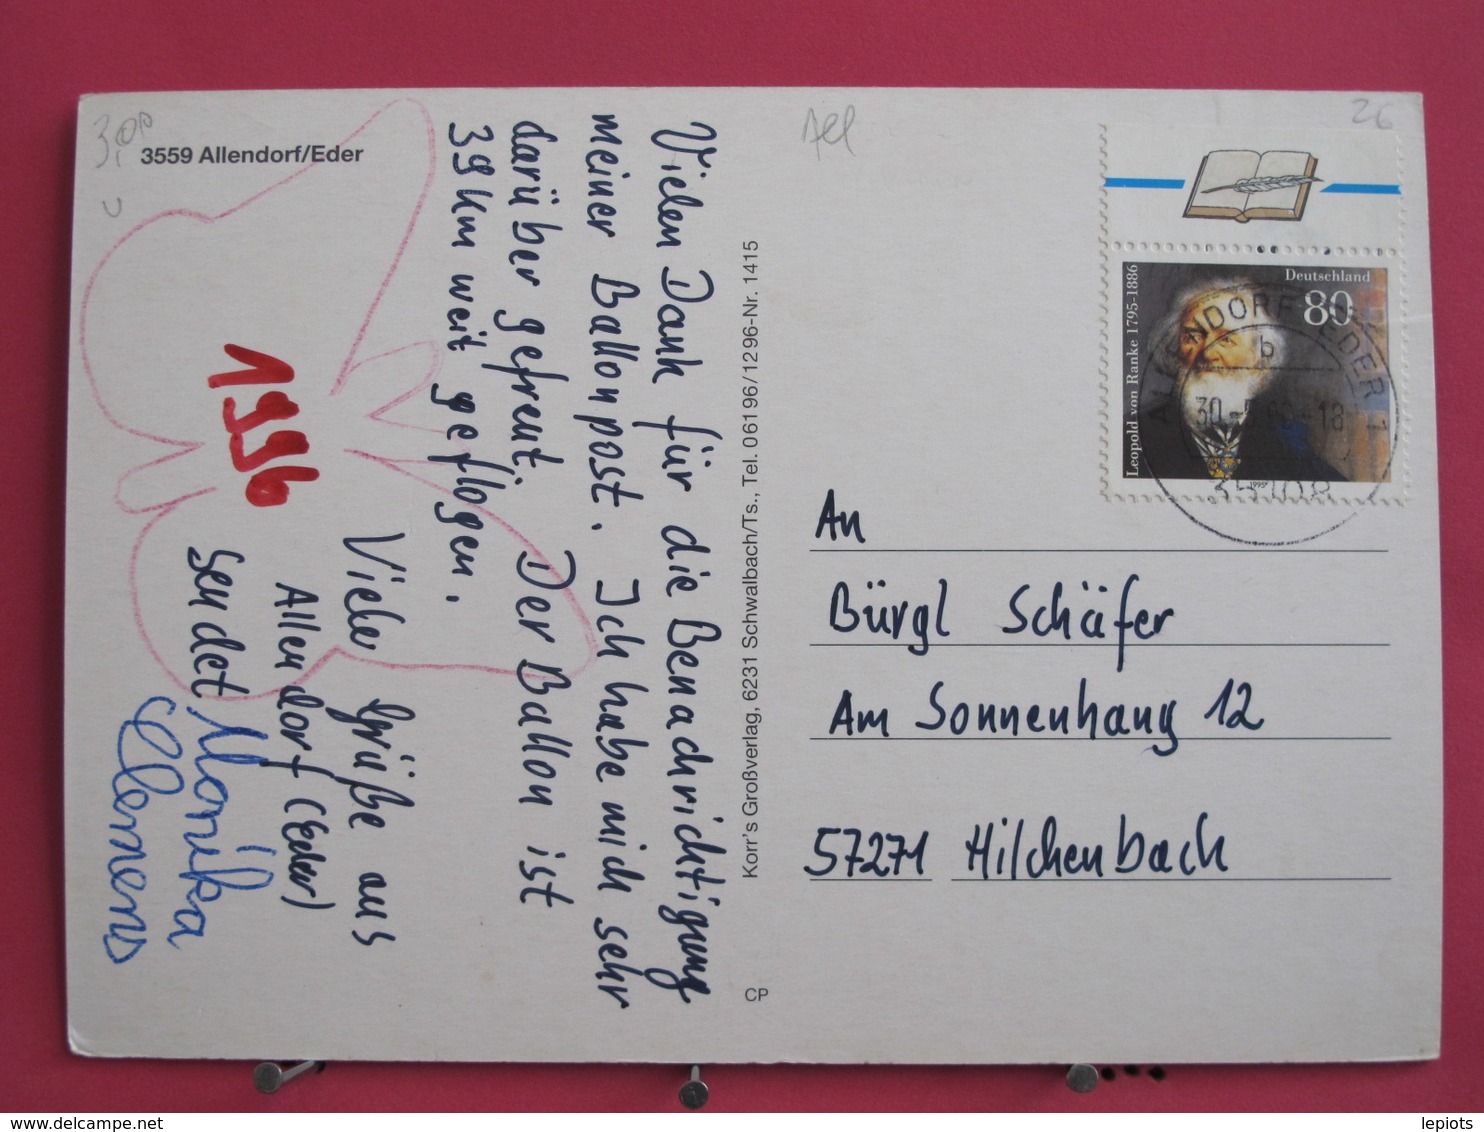 3,00
3559 Allendorf/Eder
Vielen Dank für die Benachrichtigung
meiner Ballonpost. Ich habe mich sehr
darüber gefreut. Der Ballon ist
39 km weit geflogen.
Viele Grüße aus
Allendorf (Eder)
sendet Monika
Clemens
1996
Korr's Großverlag, 6231 Schwalbach/Ts., Tel. 06196/1296-Nr. 1415
CP
26
Deutschland
80
Leopold von Ranke 1795-1886
1995
ALLENDORF, EDER 1
b
35108
An
Bürgl Schäfer
Am Sonnenhang 12
57271 Hilchenbach
www.delcampe.net
lepiots